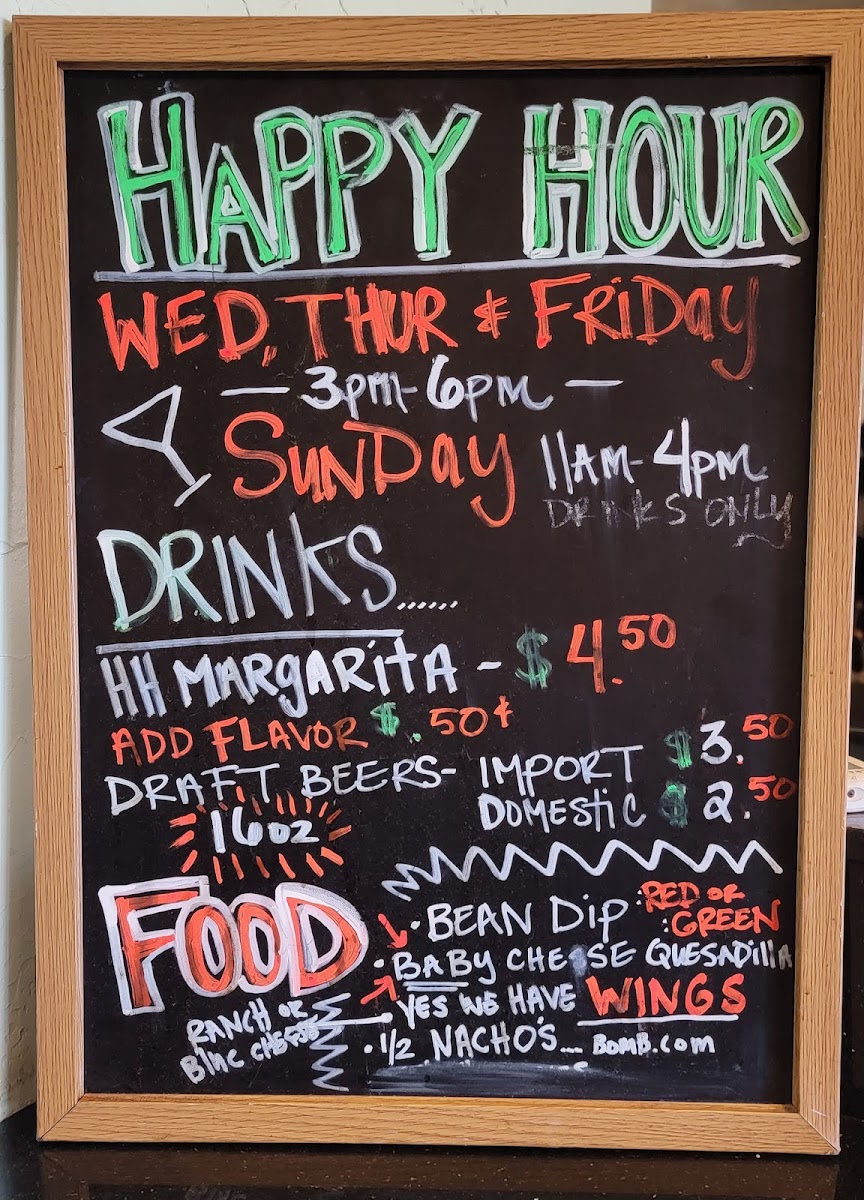 HAPPY HOUR
WED, THUR & FRiDay
— 3pm-6pm —
SUNDay 11AM-4pm
DRINKS ONLY
DRINKS......
HH MARgARitA - $4.50
ADD FLAVOR $.50¢
DRAFT BEERS- IMPORT $3.50
DOMEStiC $2.50
16oz
FOOD
·BEAN Dip :RED OR
:GREEN
·BABy CHEESE QUESADillA
YES WE HAVE WINGS
RANCH OR
Blue CHEESE
·1/2 NACHO'S... BOMB.com